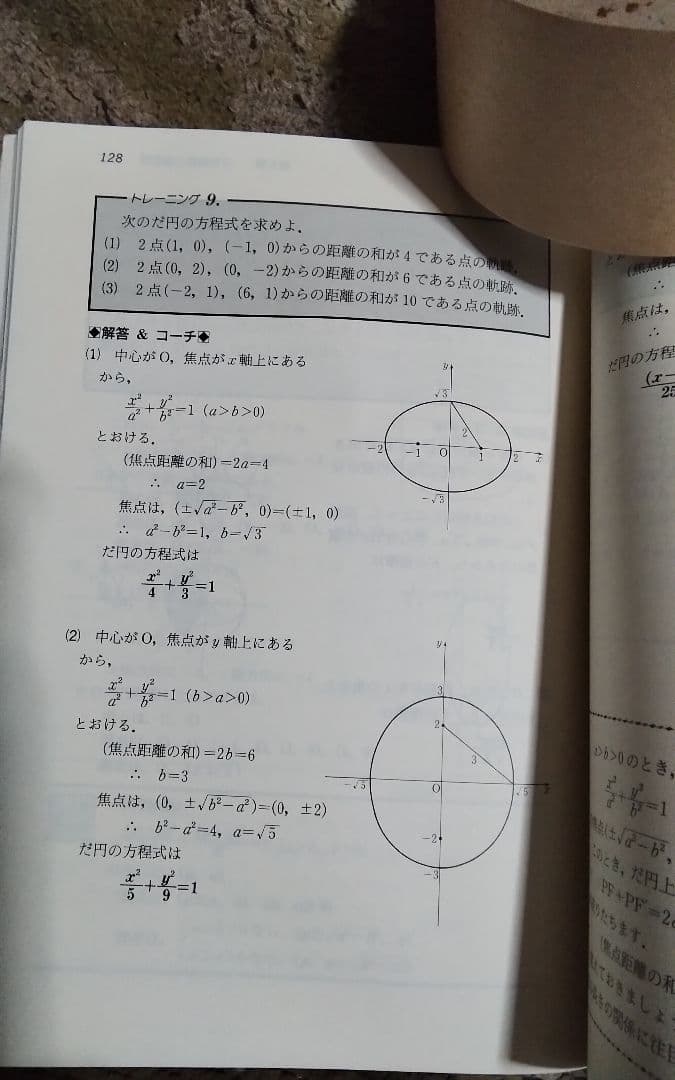 128
トレーニング 9.
次のだ円の方程式を求めよ.
(1) 2点(1, 0), (-1, 0)からの距離の和が4である点の軌跡.
(2) 2点(0, 2), (0, -2)からの距離の和が6である点の軌跡.
(3) 2点(-2, 1), (6, 1)からの距離の和が10である点の軌跡.
◆解答 & コーチ◆
(1) 中心がO, 焦点がx軸上にある
から,
x²/a²+y²/b²=1 (a>b>0)
とおける.
(焦点距離の和)=2a=4
∴ a=2
焦点は, (±√(a²-b²), 0)=(±1, 0)
∴ a²-b²=1, b=√3
だ円の方程式は
x²/4+y²/3=1
y
√3
2
-2 -1 O 1 2 x
-√3
(2) 中心がO, 焦点がy軸上にある
から,
x²/a²+y²/b²=1 (b>a>0)
とおける.
(焦点距離の和)=2b=6
∴ b=3
焦点は, (0, ±√(b²-a²))=(0, ±2)
∴ b²-a²=4, a=√5
だ円の方程式は
x²/5+y²/9=1
y
3
2
3
-√5 O √5 x
-2
-3
(焦点距
∴
焦点は,
∴
だ円の方程
(x-
25
>b>0のとき,
x²/a²+y²/b²=1
(±√(a²-b²),
このとき, だ円上
PF+PF'=2
りたちます.
(焦点距離の和
えておきましょ
の関係に注目